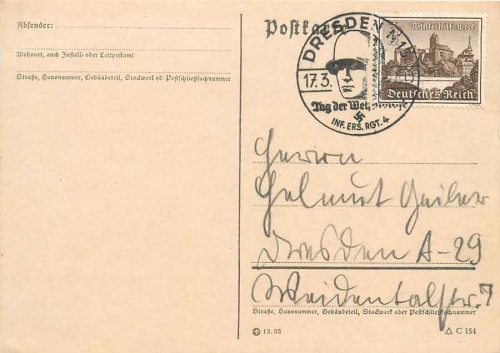 Absender:
Wohnort, auch Zustell- oder Leitpostamt
Straße, Hausnummer, Gebäudeteil, Stockwerk od. Postschließfachnummer
Postkarte
DRESDEN N15
17.3.
Tag der Wehrmacht
INF. ERS. RGT. 4
Winterhilfswerk
Deutsches Reich
Herrn
Helmut
Dresden A-29
Weidentalstr. 7
Straße, Hausnummer, Gebäudeteil, Stockwerk oder Postschließfachnummer
12.38
C 154